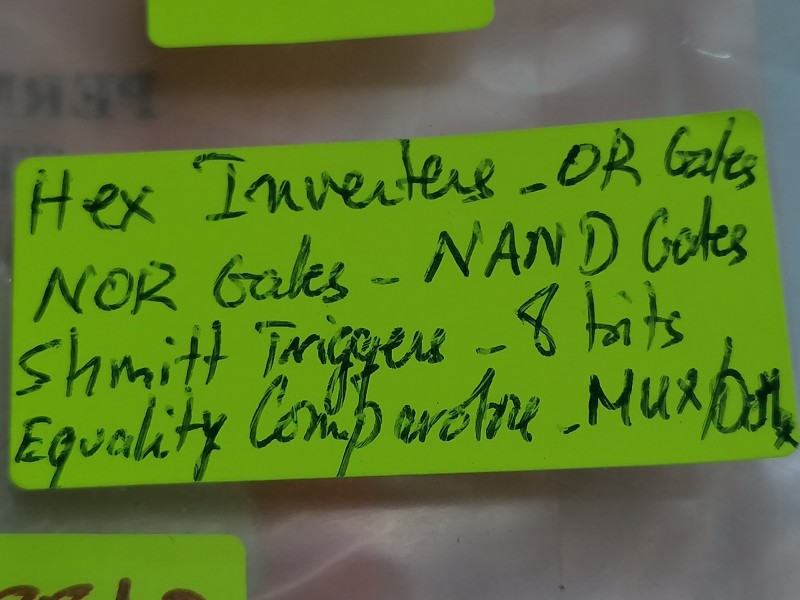 Hex Inverters - OR Gates
NOR Gates - NAND Gates
Shmitt Triggers - 8 bits
Equality Comparators - MUX/DMx